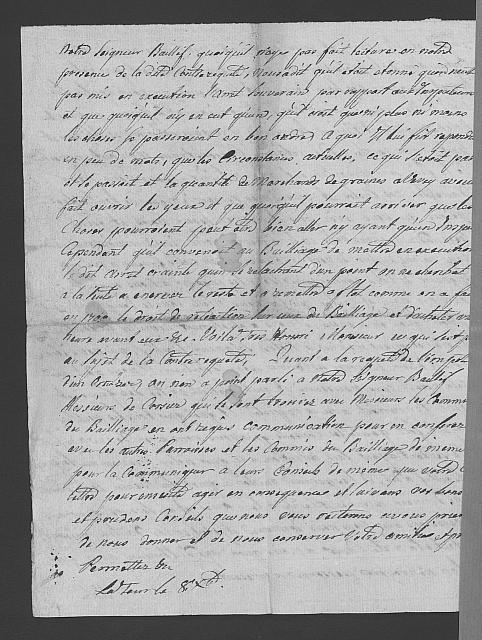 Notre Seigneur Baillif, quoiqu'il n'ayes pas fait lecture en notre
presence de la dite Contrequete, Nous a dit qu'il etait etonné qu'on n'eut
pas mis en execution l'arrêt souverain par rapport aux Inspecteurs
et que quoiqu'il n'y en eut qu'un, qu'il croit que ni plus ni moins
les choses se passeroient en bon ordre A quoi Il lui fut repondu
en peu de mots, que les Circonstances actuelles, ce qui s'etoit passé
et se passoit et la quantité de Marchands de graines a Vevey avoient
fait ouvrir les yeux et que quoiqu'il pourrait arriver que les
Choses pourroient peut être bien aller n'y ayant qu'un Inspe
Cependant qu'il convenoit au Bailliage de mettre en execution
le dit crainte qu'en se relachant d'un point on ne cherchat
a la suite a enerver le reste et a remettre a flot comme on a fait
en le droit de sur ceux du Bailliage et d'acheter une
heure avant eux &c. Voila Tres Honoré Monsieur ce qui s'est p
au sujet de la Contrequete, Quant a la requete de l'impot
d'un Cruzer, on n'en a point parlé a Notre Seigneur Baillif
Messieurs de Corsier qui se sont trouvés avec Messieurs les Commis
du Bailliage en ont reçus communication pour en conferer
avec les autres Parroisses et les Commis du Bailliage de meme
pour la Communiquer a leurs Conseils de même que votre
lettre pour ensuite agir en consequence et suivans vos bons
et prudens Conseils que nous vous reiterons avons prié
de nous donner et de nous conserver Votre amitié Apr
Permettez de
La Tour le 8e Xbr.